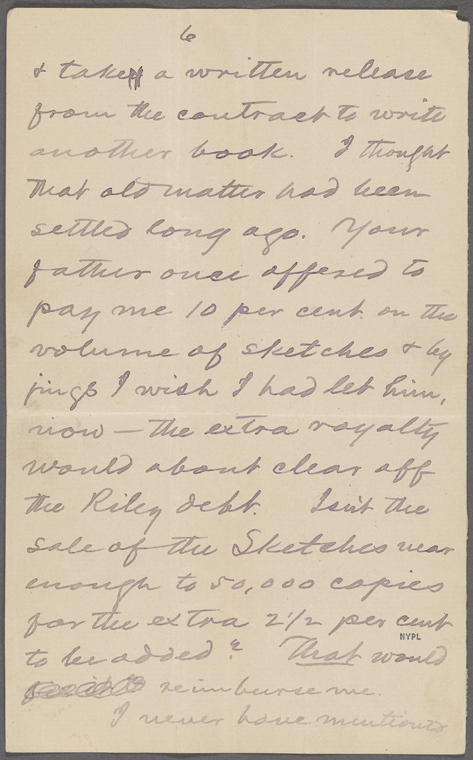 6
& take a written release
from the contract to write
another book. I thought
that old matter had been
settled long ago. Your
father once offered to
pay me 10 per cent. on the
volume of sketches & by
jings I wish I had let him,
now — the extra royalty
would about clear off
the Riley debt. Isn't the
sale of the Sketches near
enough to 50,000 copies
for the extra 2½ per cent
NYPL
to be added? That would
reimburse me.
I never have mentioned